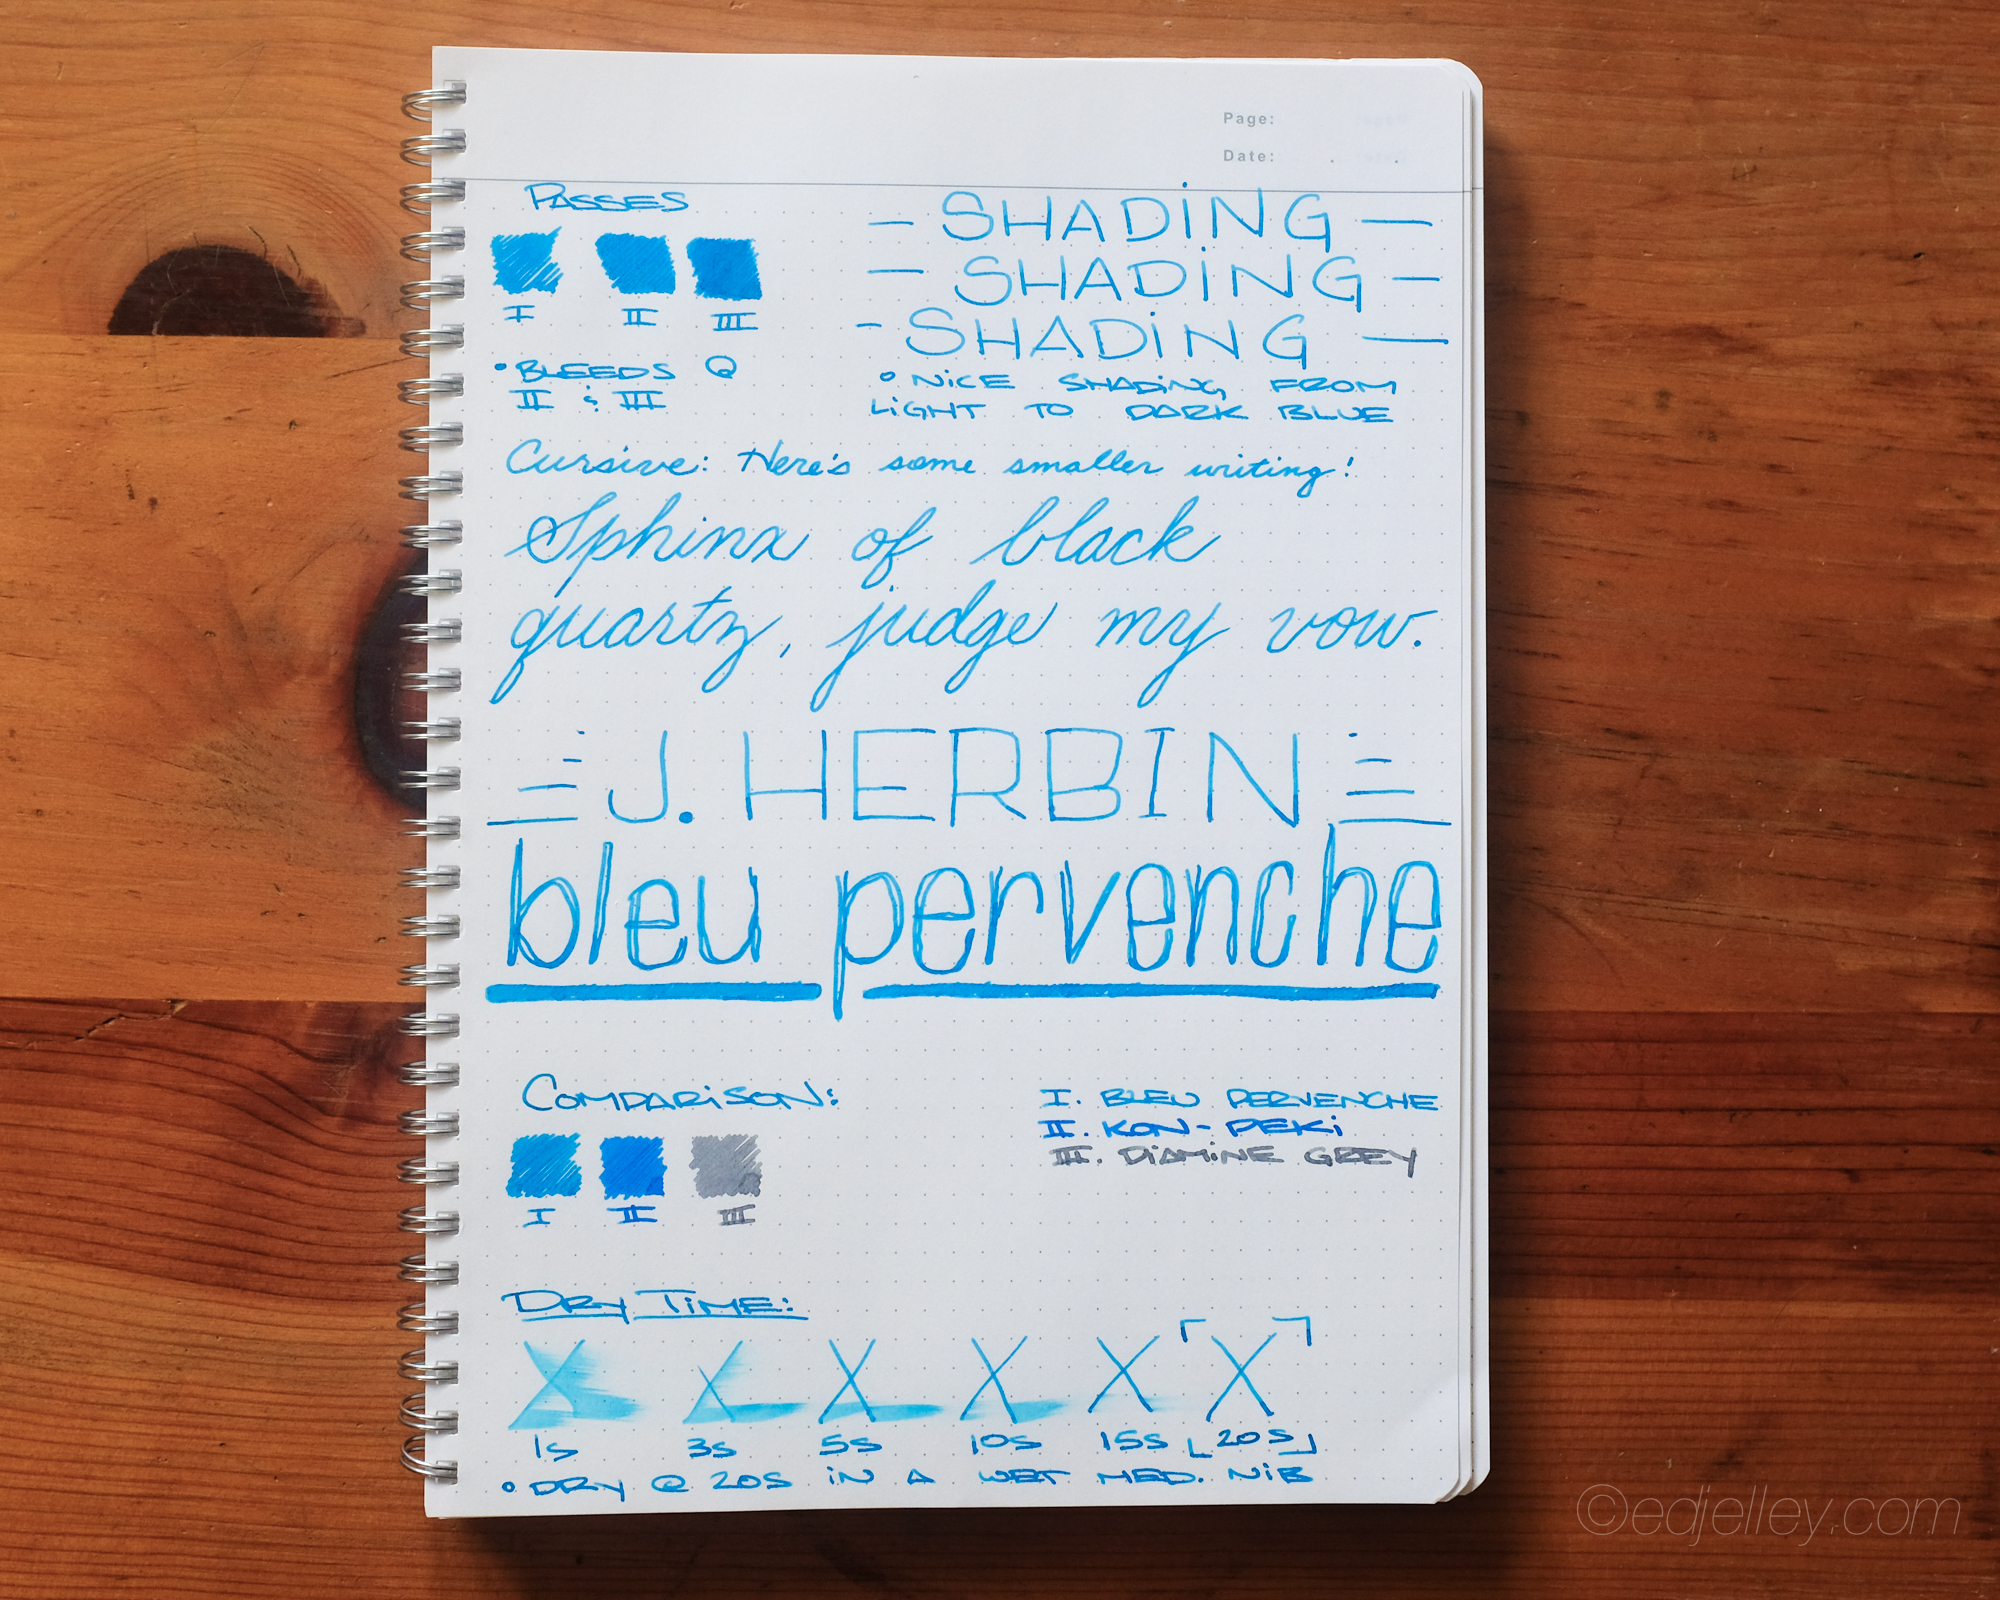 Page:
Date: . .
PASSES
I II III
• BLEEDS @
II & III
- SHADING -
- SHADING -
- SHADING -
• NICE SHADING FROM
LIGHT TO DARK BLUE
Cursive: Here's some smaller writing!
Sphinx of black
quartz, judge my vow.
J. HERBIN
bleu pervenche
COMPARISON:
I II III
I. BLEU PERVENCHE
II. KON-PEKI
III. DIAMINE GREY
DRY TIME:
X X X X X X
1s 3s 5s 10s 15s 20s
• DRY @ 20S IN A WET MED. NIB
©edjelley.com